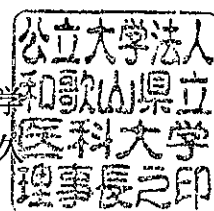 公立大学法人
和歌山県立
医科大学
理事長之印
学
久